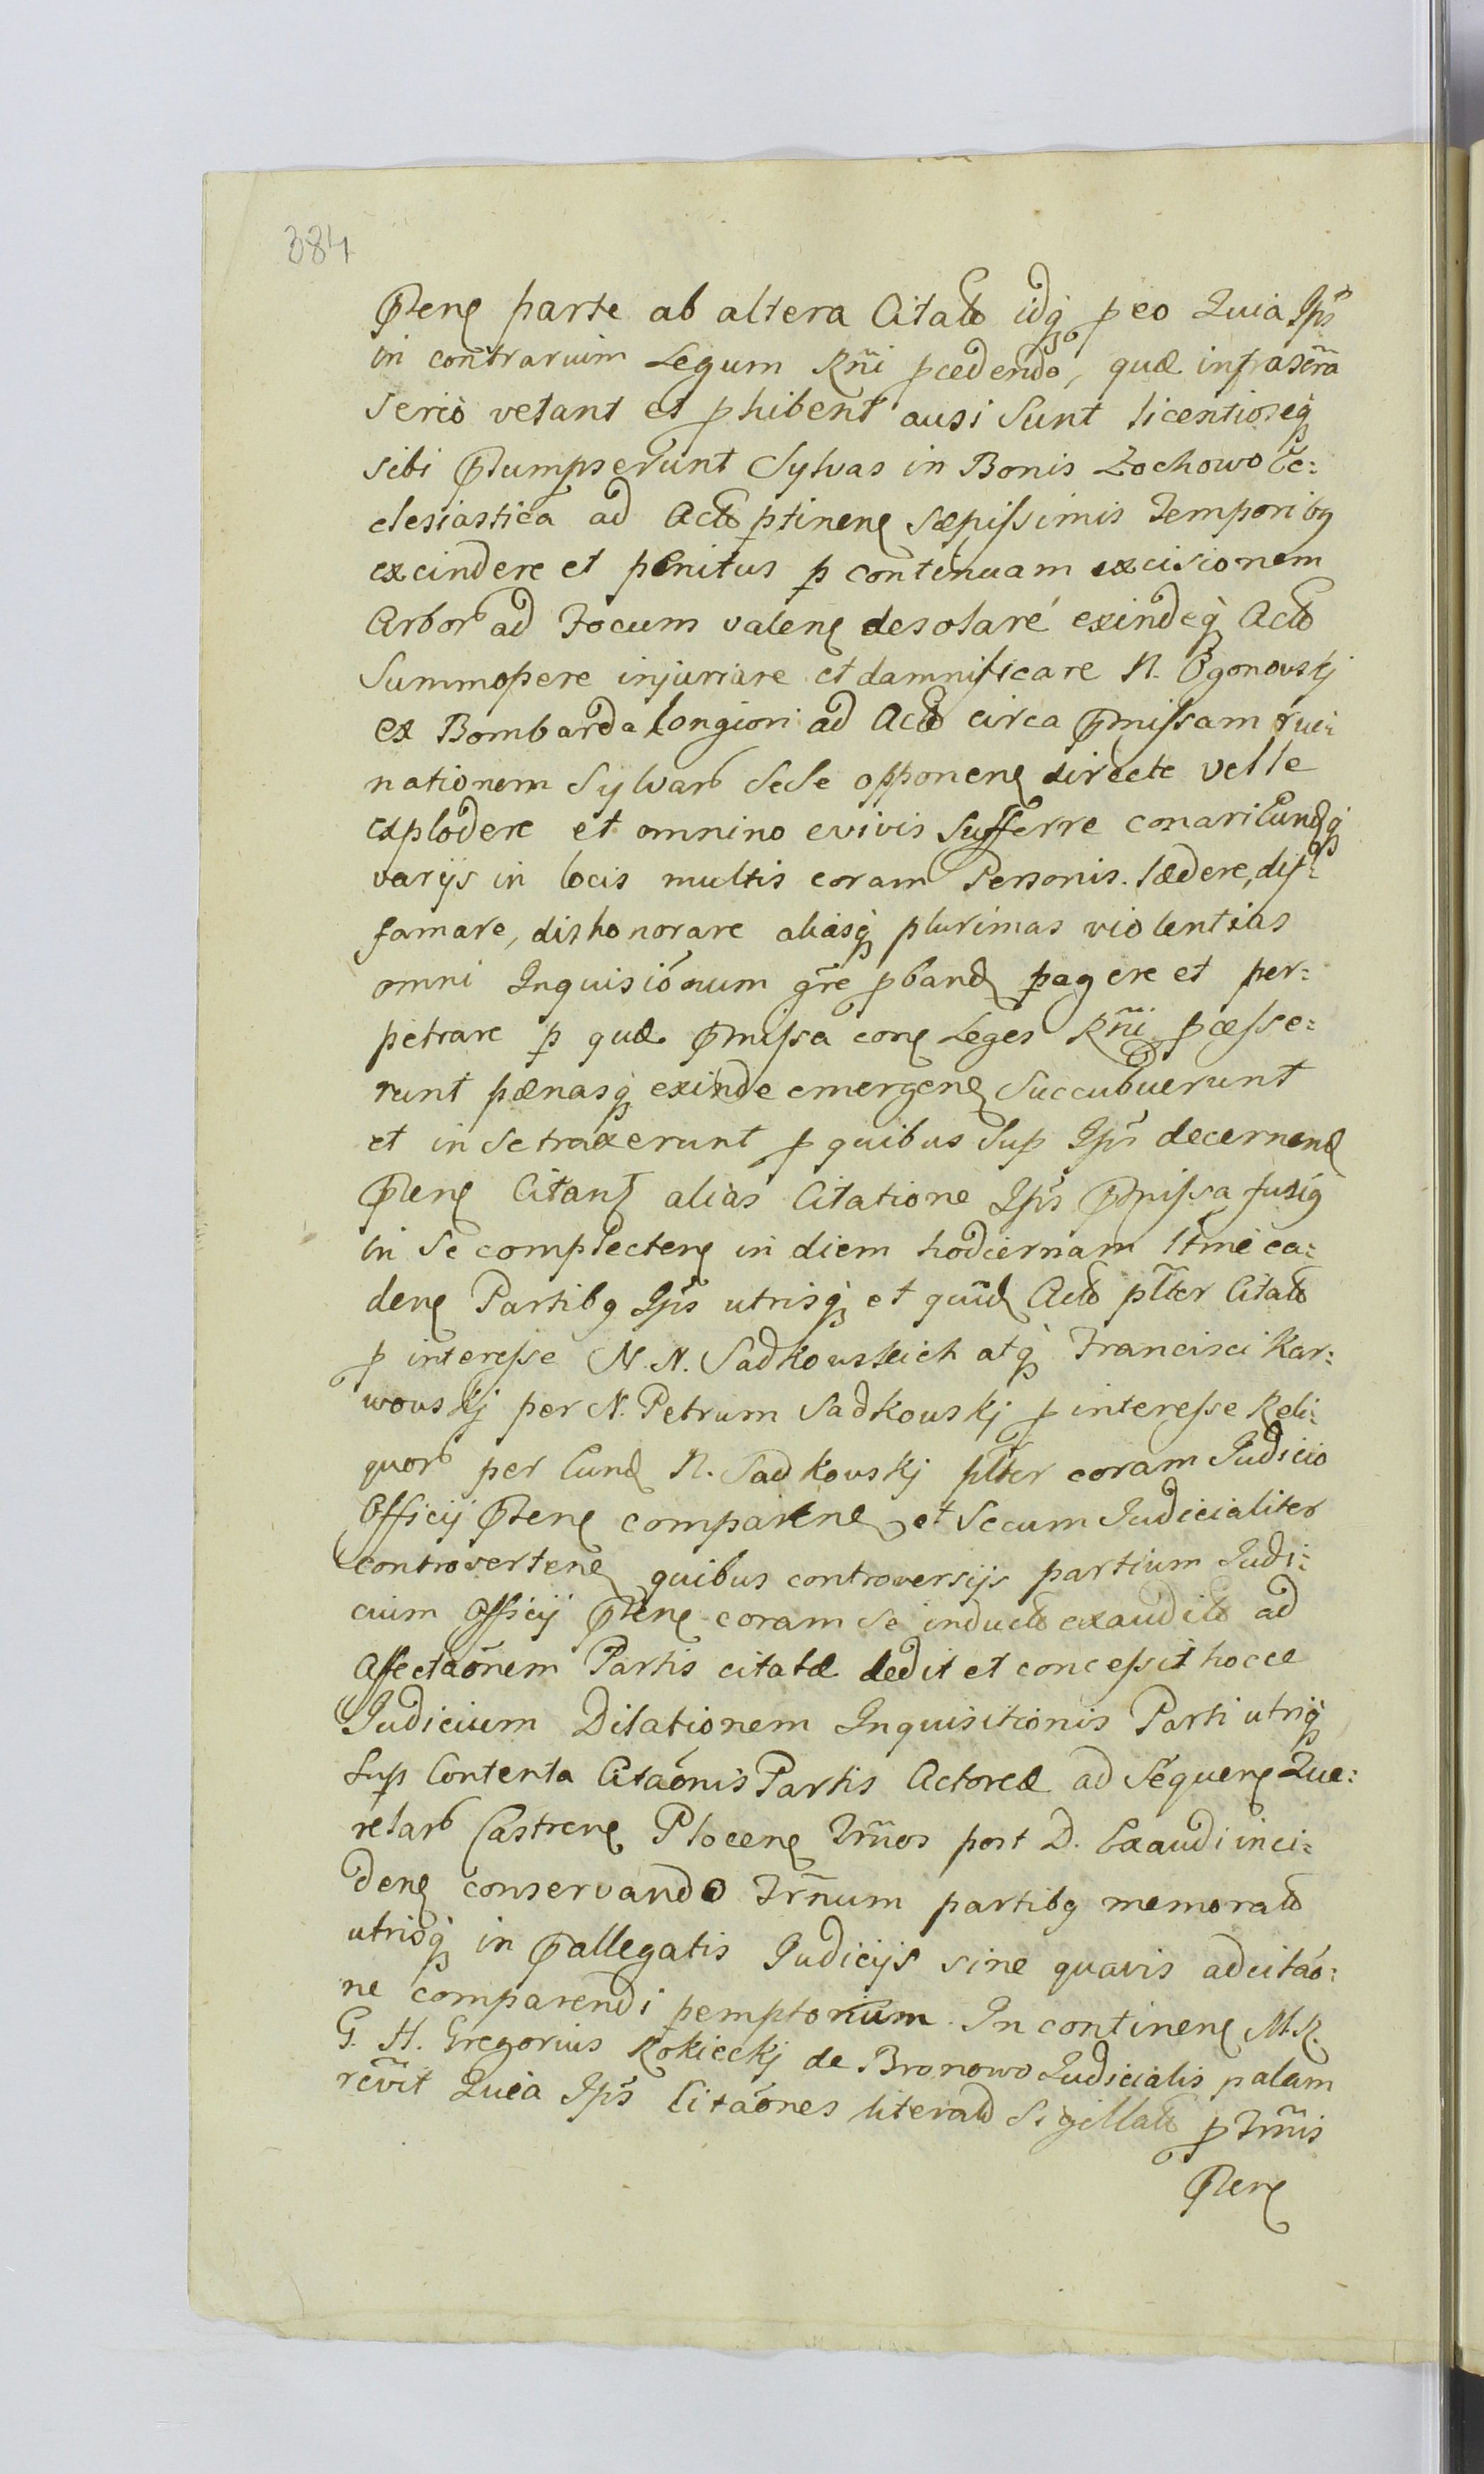 384
Pntenꝭ parte ab altera Citatō idqꝫ ꝓ eo Quia Ips̃
in contrarium Legum Rñi ꝓcedendo, quæ infrascñra
serio vetant et ꝓhibent ausi sunt licentioseqꝫ
sibi Præsumpserunt Sylvas in Bonis Zochowo Ec:
clesiastica ad Actō ꝑtinenꝭ sæpissimis Temporibꝯ
excindere et penitus ꝑ continuam excisionem
Arborō ad Focum valenꝭ desolare exindeqꝫ Actō
Summopere injuriare et damnificare N. Ogonovskj
ex Bombarda longiori ad Actō circa Præmissam rui:
nationem Sylvarō sese opponenꝭ directe velle
explodere et omnino evivis sufferre conari Eundqꝫ
varijs in locis multis coram Personis lædere, dif:
famare, dishonorare aliasqꝫ plurimas violentias
omni Inquisiõnum gr̃e ꝓbandꝭ ꝑagere et per:
petrare ꝑ quæ Præmissa conꝭ Leges Rñi ꝓcesse:
runt pænasqꝫ exinde emergenꝭ succubuerunt
et in se traxerunt ꝓ quibus Sup Ips̃ decernendꝭ
Pntenꝭ Citantꝭ alias Citatione Ips̃ Præmissa fusiꝯ
in se complectenꝭ in diem hodiernam ltm̃e ca:
denꝭ Partibꝯ Ips̃ utrisqꝫ et quid̃ꝭ Actō pl̃ter Citatō
ꝓ interesse N. N. Sadkouskich atqꝫ Francisci Kar:
wouskj per N. Petrum Sadkouskj ꝓ interesse Reli:
quorō per Eundꝭ N. Sadkouskj pl̃ter coram Judicio
Officij Pntenꝭ comparenꝭ et secum Judicialiter
controvertenꝭ quibus controversijs partium Judi:
cium Officij Pntenꝭ coram se inductō exauditō ad
Affectaõnem Partis citatæ dedit et concessit hocce
Judicium Dilationem Inquisitionis Parti utriqꝫ
Suꝑ Contenta Citaõnis Partis Actoreæ ad Sequenꝭ Que:
relarō Castrenꝭ Plocenꝭ Trm̃os post D. Exaudi inci:
denꝭ conservando Trm̃num partibꝯ memoratō
utrisqꝫ in Præallegatis Judicijs sine quavis adcitaõ:
ne comparendi ꝑemptorium. In continenꝭ M. R.
G. H. Gregorius Rokieckj de Bronowo Judicialis palam
rec̃vit Quia Ips̃ Citaõnes literatō Sigillatō ꝓ Trm̃is
Pntenꝭ